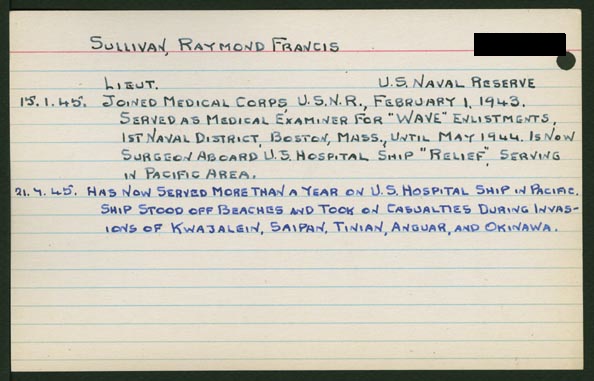 SULLIVAN, RAYMOND FRANCIS
LIEUT. U.S. NAVAL RESERVE
15.1.45. JOINED MEDICAL CORPS, U.S.N.R., FEBRUARY 1, 1943.
SERVED AS MEDICAL EXAMINER FOR "WAVE" ENLISTMENTS,
1ST NAVAL DISTRICT, BOSTON, MASS., UNTIL MAY 1944. IS NOW
SURGEON ABOARD U.S. HOSPITAL SHIP "RELIEF", SERVING
IN PACIFIC AREA.
21.7.45. HAS NOW SERVED MORE THAN A YEAR ON U.S. HOSPITAL SHIP IN PACIFIC.
SHIP STOOD OFF BEACHES AND TOOK ON CASUALTIES DURING INVAS-
IONS OF KWAJALEIN, SAIPAN, TINIAN, ANGUAR, AND OKINAWA.